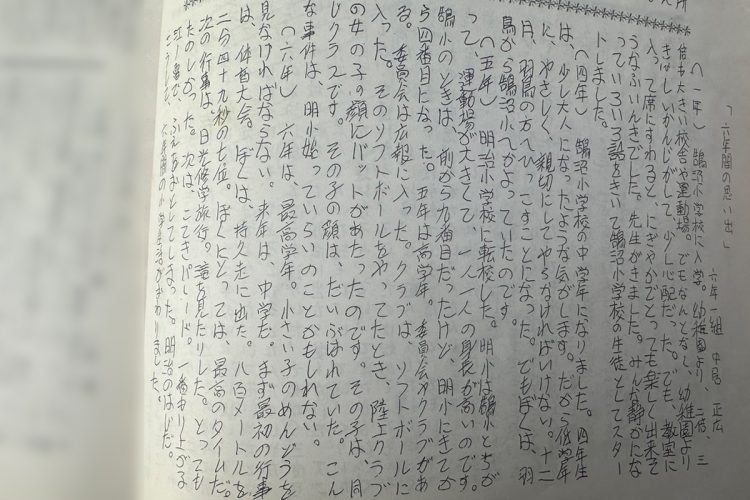 「六年間の思い出」
六年一組 中居 正広
(一年) 鵠沼小学校に入学。幼稚園より、二倍、三
倍も大きい校舎や運動場。でもなんとなく、幼稚園より
きびしいかんじがして、少し心配だった。でも、教室に
入って席にすわると、にぎやかでとっても楽しく出来そ
うなふんいきでした。先生がきました。みんな静かにな
っていろいろ話をきいて鵠沼小学校の生徒としてスター
トしました。
(四年) 鵠沼小学校の中学年になりました。四年生
は、少し大人になったような気がします。だから低学年
に、やさしく、親切にしてやらなければいけない。十二
月、羽鳥の方へひっこすことになった。でもぼくは、羽
鳥から鵠沼小へかよっていたのです。
(五年) 明治小学校に転校した。明小は鵠小とちが
って、運動場が大きくて、一人一人の身長が高いのです。
鵠小のときは、前から九番目だったけど、明小にきてか
ら四番目になった。五年は高学年。委員会やクラブがあ
る。委員会は広報に入った。クラブは、ソフトボールに
入った。そのソフトボールをやってたとき、陸上クラブ
の女の子の顔にバットがあたったのです。その子は、同
じクラスです。その子の顔は、だいぶはれていた。こん
な事件は、明小始っていらいのことかもしれない。
(六年) 六年は、最高学年。小さい子のめんどうを
見なければならない。来年は、中学だ。まず最初の行事
は、体育大会。ぼくは、持久走に出た。八百メートルを
二分四十九秒の七位。ぼくにとっては、最高のタイムだ。
次の行事は、日光修学旅行。滝を見たりした。とっても
たのしかった。次は、こてきパレード。一番もり上がる
ふえをおとしてしまった。明治のはじだ。
六年間の小学生活がおわりました。